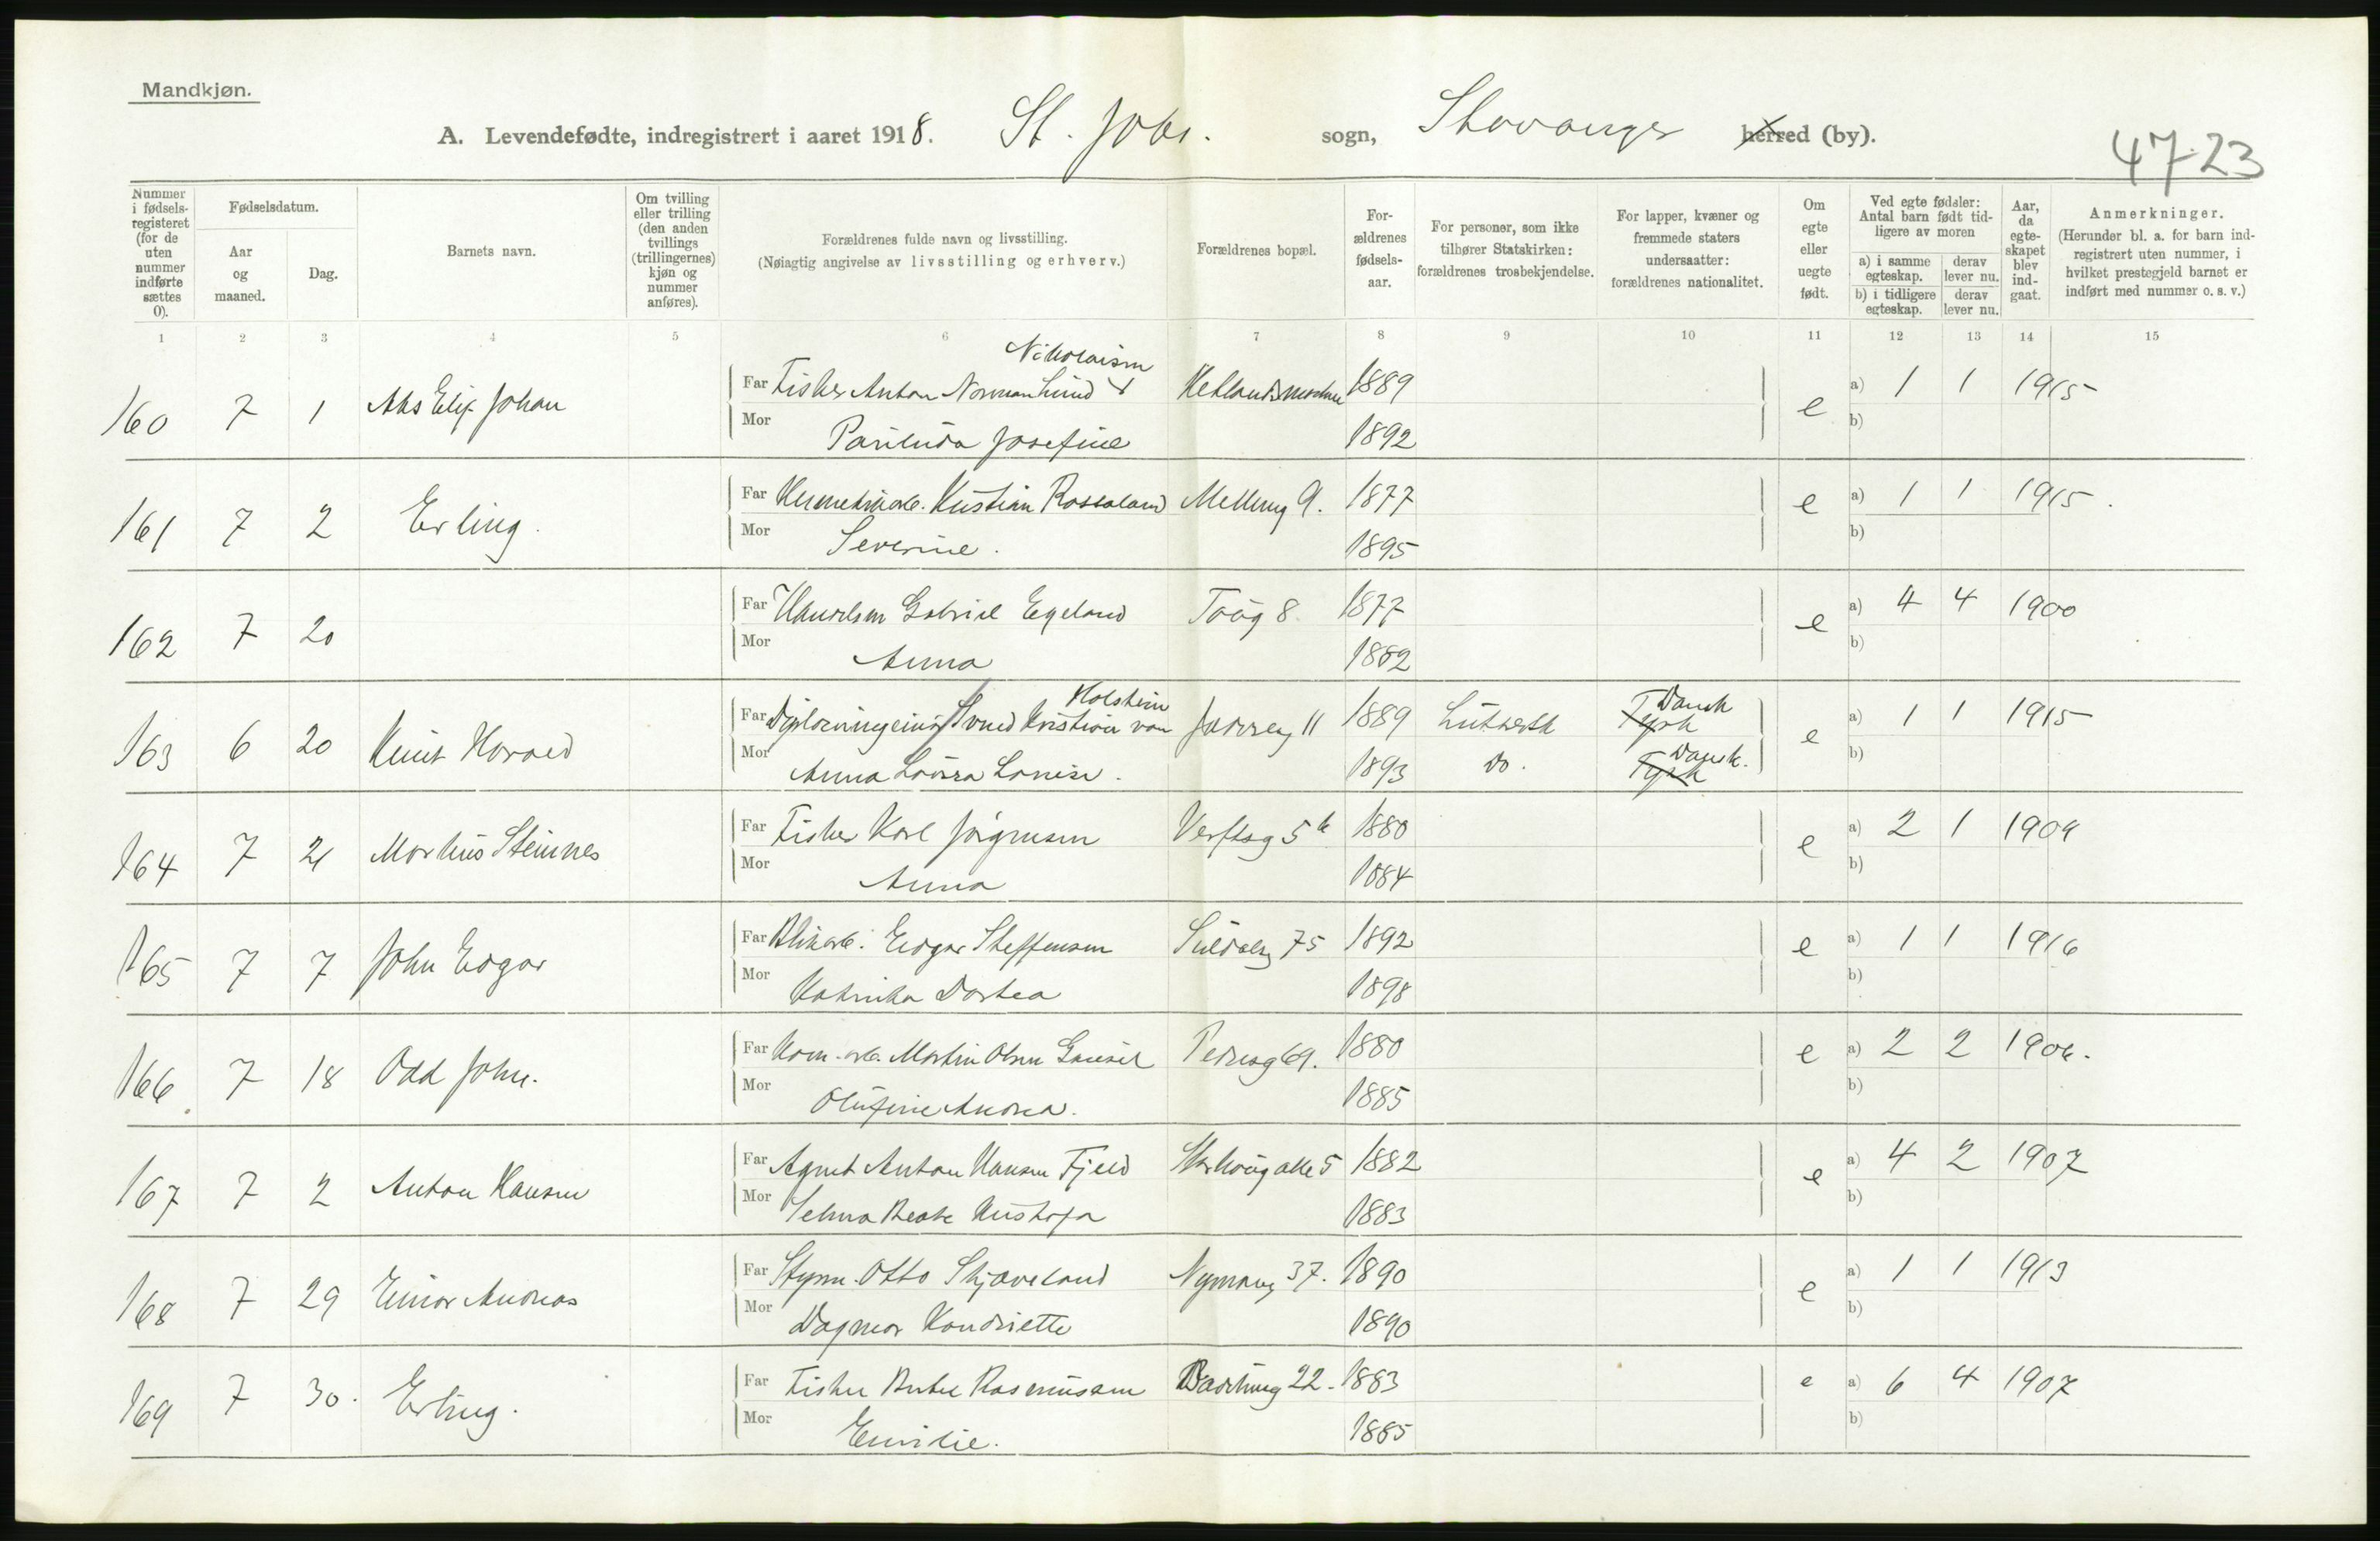 Mandkjøn.
A. Levendefødte, indregistrert i aaret 1918. St. Johs. sogn, Stavanger herred (by).
47-23
Nummer i fødsels-registeret (for de uten nummer indførte sættes 0).
Fødselsdatum.
Aar og maaned.
Dag.
Barnets navn.
Om tvilling eller trilling (den anden tvillings (trillingernes) kjøn og nummer anføres).
Forældrenes fulde navn og livsstilling.
(Nøiagtig angivelse av livsstilling og erhverv.)
Forældrenes bopæl.
For-ældrenes fødsels-aar.
For personer, som ikke tilhører Statskirken: forældrenes trosbekjendelse.
For lapper, kvæner og fremmede staters undersaatter: forældrenes nationalitet.
Om egte eller uegte født.
Ved egte fødsler: Antal barn født tid-ligere av moren
a) i samme egteskap.
derav lever nu.
b) i tidligere egteskap.
derav lever nu.
Aar, da egte-skapet blev ind-gaat.
Anmerkninger.
(Herunder bl. a. for barn ind-registrert uten nummer, i hvilket prestegjeld barnet er indført med nummer o. s. v.)
1 2 3 4 5 6 7 8 9 10 11 12 13 14 15
Nikolaisen
160 7 1 Johan Far Fisker Anton Norman Lund 1889 e a) 1 1 1915
Mor Josefine 1892 b)
161 7 2 Erling. Far Hermetikarb. Kristian Rossaland Melling 9. 1877 e a) 1 1 1915.
Mor Severine. 1895 b)
162 7 20 Far Gabriel Egeland 8. 1877 e a) 4 4 1900
Mor Anna 1882 b)
Holstein Dansk
163 6 20 Knut Harald Far Svend Kristian von 11 1889 Luthersk Tysk e a) 1 1 1915
Dansk.
Mor Anna Laura Louise. 1893 Do. Tysk b)
164 7 21 Markus Steinnes Far Fisker Karl Jörgensen Verftsg 5 b 1880 e a) 2 1 1909
Mor Anna 1884 b)
165 7 7 John Edgar Far Blikarb. Edgar Steffensen Suldalsg 75 1892 e a) 1 1 1916
Mor Katrinka Dortea 1898 b)
166 7 18 Odd John. Far Kom. arb. Martin Olsen Gausel Pedersg 69. 1880 e a) 2 2 1906.
Mor Olufine Andrea. 1885 b)
167 7 2 Anton Hansen Far Agent Anton Hansen Fjeld 5 1882 e a) 4 2 1907
Mor Selma Beate Kristofa 1883 b)
168 7 29 Einar Andreas Far Styrm. Otto Skjæveland Nymansg 37. 1890 e a) 1 1 1913
Mor Dagmar Handriette 1890 b)
169 7 30. Erling. Far Fisker Rasmussen 22. 1883 e a) 6 4 1907
Mor Emilie. 1885 b)